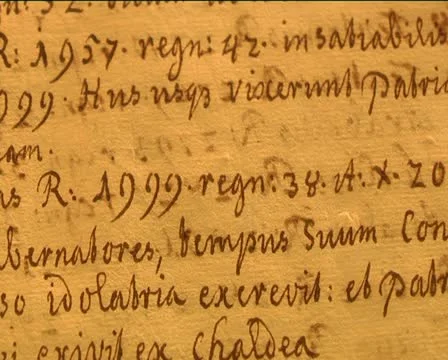 R: 1957. regn: 42. insatiabilis
999. Hus usqꝫ vixerunt Patri
eam.
R: 1999. regn: 38. A: X. 20
bernatores, tempus Suum Con
so idolatria excrevit: et patr
exivit ex Chaldea